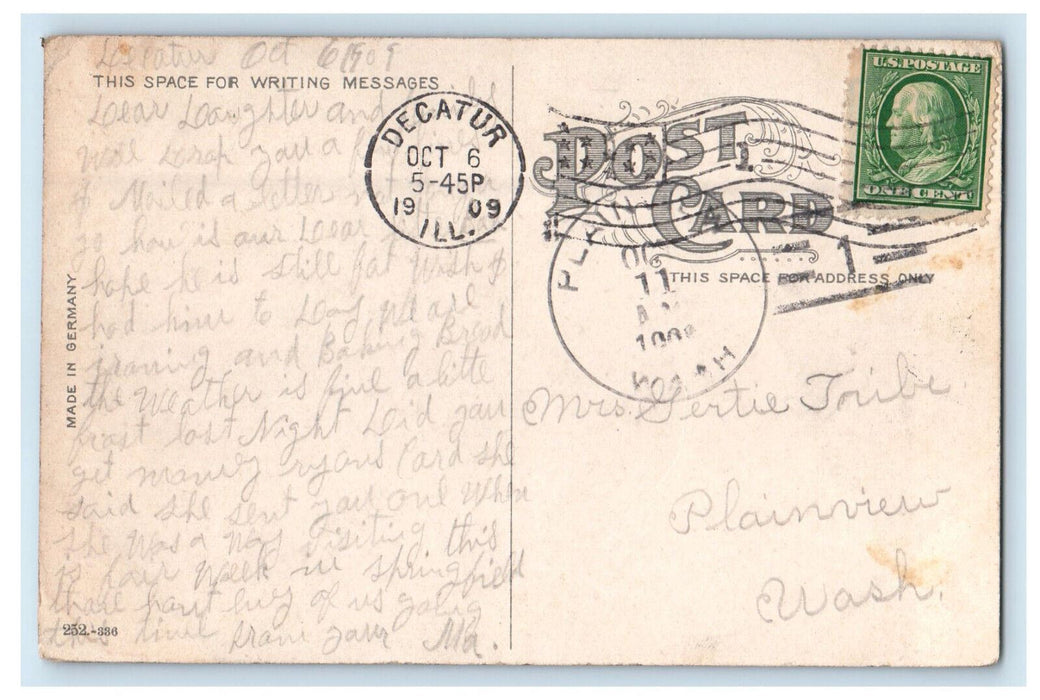 Decatur Oct 6 1909
THIS SPACE FOR WRITING MESSAGES
Dear Daughter and
Well Scrap you a
I Mailed a letter
so how is our Dear
hope he is still fat Wish I
had him to Day We are
ironing and Baking Bread
the Weather is fine a litte
frost last Night Did you
get Card she
said she sent you one When
she was a way visiting this
is fair Week in springfield
of us going
this time from your Ma.
MADE IN GERMANY
252.-336
DECATUR
OCT 6
5-45P
19 09
ILL.
POST CARD
THIS SPACE FOR ADDRESS ONLY
OC
11
WASH
1
U.S. POSTAGE
ONE CENT
Mrs. Gertie Tribe
Plainview
Wash.